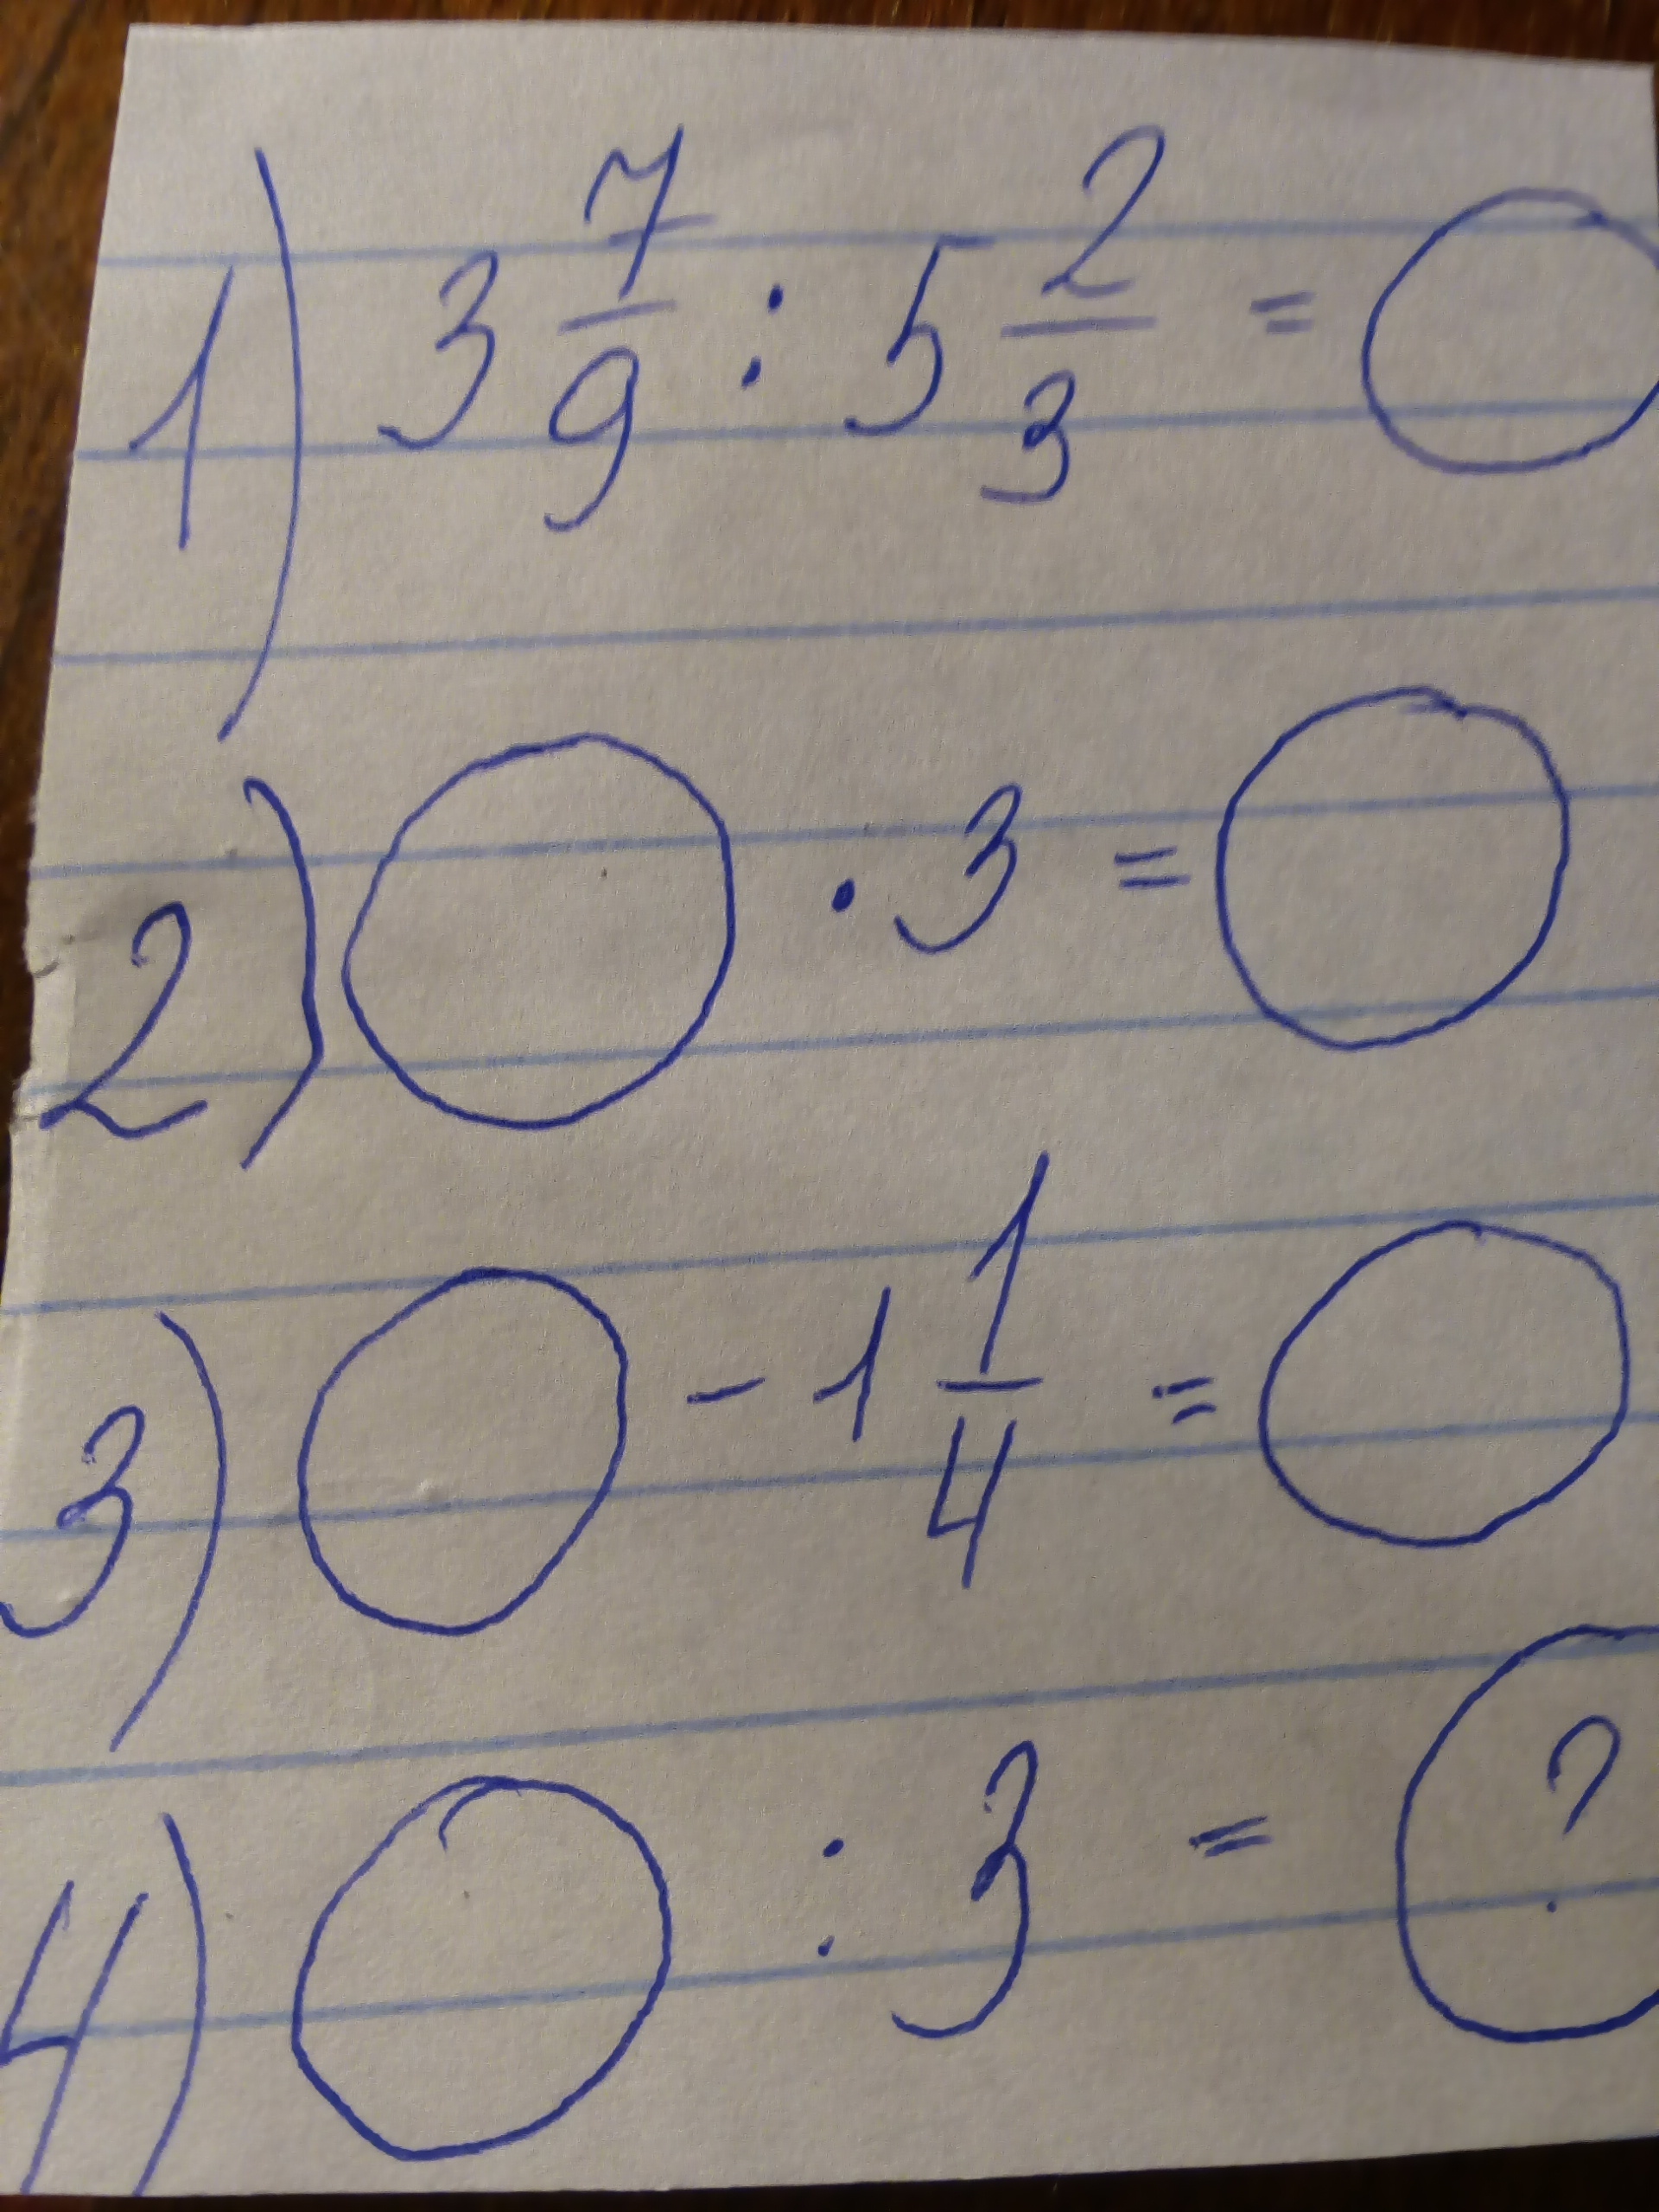 1) 3 7/9 : 5 2/3 =
2) · 3 =
3) - 1 1/4 =
4) : 3 = ?